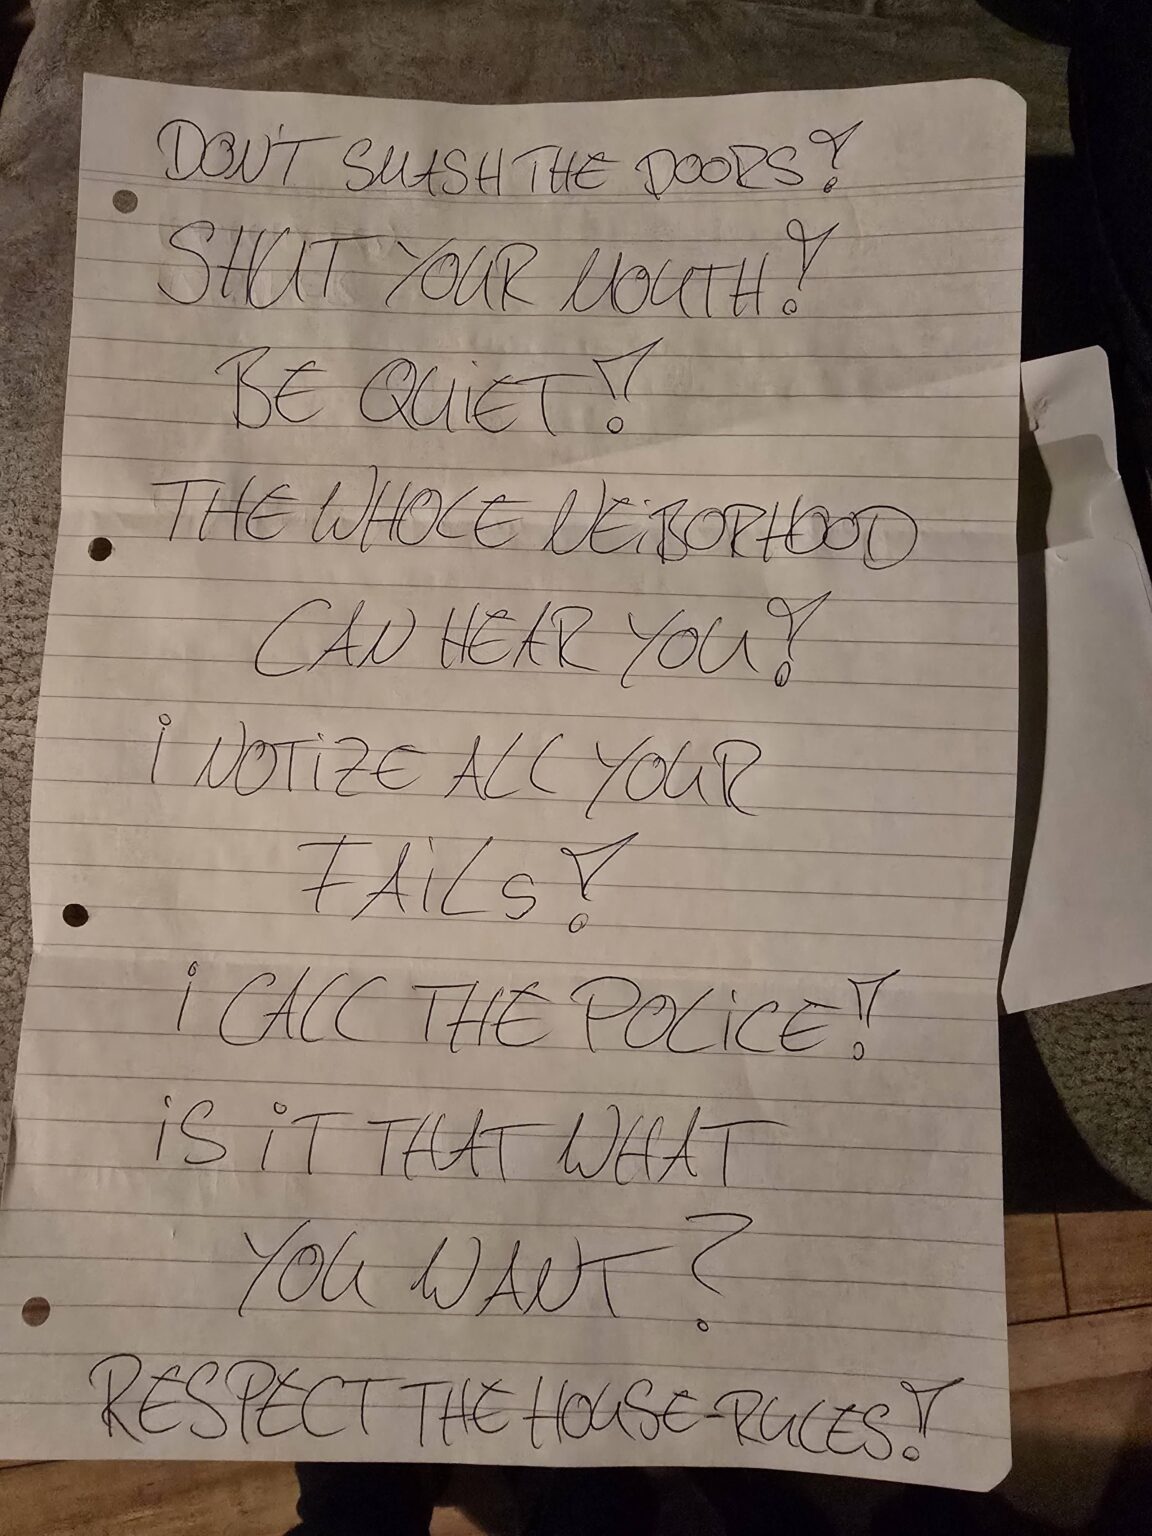 DON'T SMASH THE DOORS!
SHUT YOUR MOUTH!
BE QUIET!
THE WHOLE NEiBORHOOD
CAN HEAR YOU!
i NOTiZE ALL YOUR
FAiLS!
i CALL THE POLiCE!
iS iT THAT WHAT
YOU WANT?
RESPECT THE HOUSE-RULES!